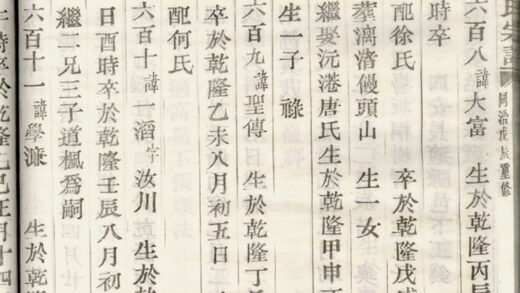 氏宗譜
同治戊辰重修
六百八諱大富 生於乾隆丙辰
時卒
配徐氏 卒於乾隆戊戌
葬漓渚饅頭山 生一女
繼娶沅港唐氏生於乾隆甲申
生一子 祿
六百九諱聖傳 生於乾隆丁
卒於乾隆乙未八月初五日
配何氏
六百十諱一滔字汝川 生於乾
日酉時卒於乾隆壬辰八月初
繼二兄三子道楓為嗣
六百十一諱學濂 生於乾
上時卒於乾隆乙巳正月十四